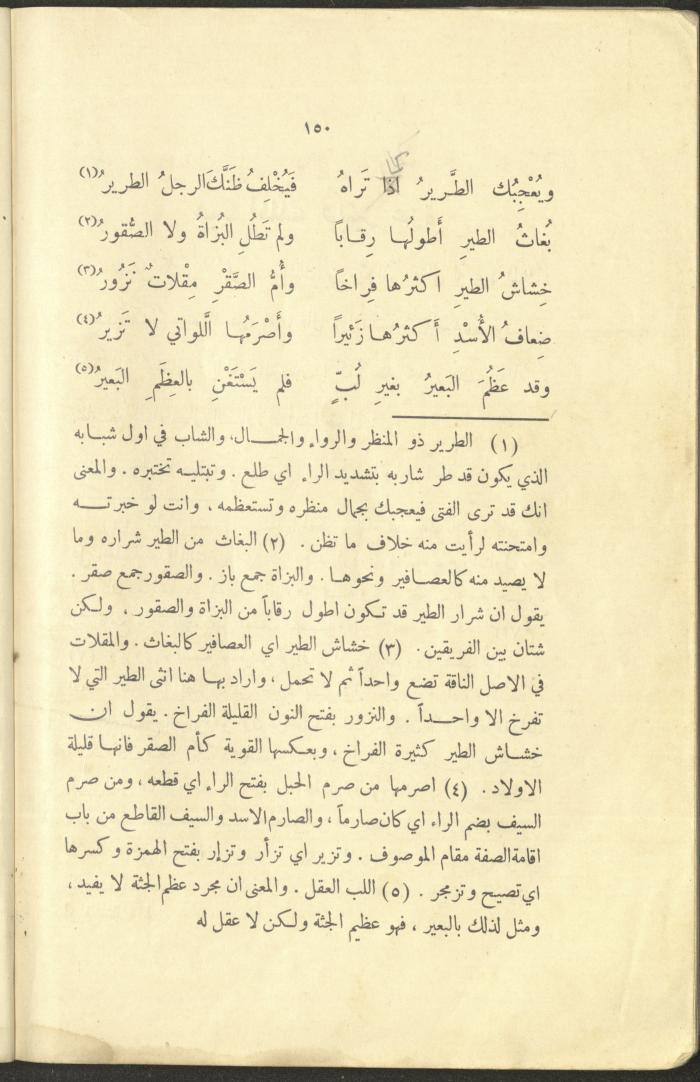 ١٥٠
ويُعْجِبُك الطَّريرُ اذا تَراهُ فَيُخْلِفُ ظَنَّكَ الرجلُ الطريرُ (١)
بُغاثُ الطيرِ أَطولُها رِقاباً ولم تَطُلِ البُزاةُ ولا الصُّقورُ (٢)
خِشاشُ الطيرِ اكثرُها فِراخاً وأُمُّ الصَّقْرِ مِقْلاتٌ نَزُورُ (٣)
ضِعافُ الأُسْدِ أَكثرُها زَئيراً وأَصْرَمُها الَّلواتي لا تَزيرُ (٤)
وقد عَظُمَ البَعيرُ بغيرِ لُبٍّ فلم يَسْتَغْنِ بالعِظَمِ البَعيرُ (٥)
(١) الطرير ذو المنظر والرواء والجمال، والشاب في اول شبابه
الذي يكون قد طر شاربه بتشديد الراء اي طلع . وتبتليه تختبره . والمعنى
انك قد ترى الفتى فيعجبك بجمال منظره وتستعظمه ، وانت لو خبرته
وامتحنته لرأيت منه خلاف ما تظن . (٢) البغاث من الطير شراره وما
لا يصيد منه كالعصافير ونحوها . والبزاة جمع باز . والصقور جمع صقر .
يقول ان شرار الطير قد تكون اطول رقاباً من البزاة والصقور ، ولكن
شتان بين الفريقين . (٣) خشاش الطير اي العصافير كالبغاث . والمقلات
في الاصل الناقة تضع واحداً ثم لا تحمل ، واراد بها هنا انثى الطير التي لا
تفرخ الا واحداً . والنزور بفتح النون القليلة الفراخ . يقول ان
خشاش الطير كثيرة الفراخ ، وبعكسها القوية كأم الصقر فانها قليلة
الاولاد . (٤) اصرمها من صرم الحبل بفتح الراء اي قطعه ، ومن صرم
السيف بضم الراء اي كان صارماً ، والصارم الاسد والسيف القاطع من باب
اقامة الصفة مقام الموصوف . وتزير اي تزأر وتزإر بفتح الهمزة وكسرها
اي تصيح وتزمجر . (٥) اللب العقل . والمعنى ان مجرد عظم الجثة لا يفيد ،
ومثل لذلك بالبعير ، فهو عظيم الجثة ولكن لا عقل له